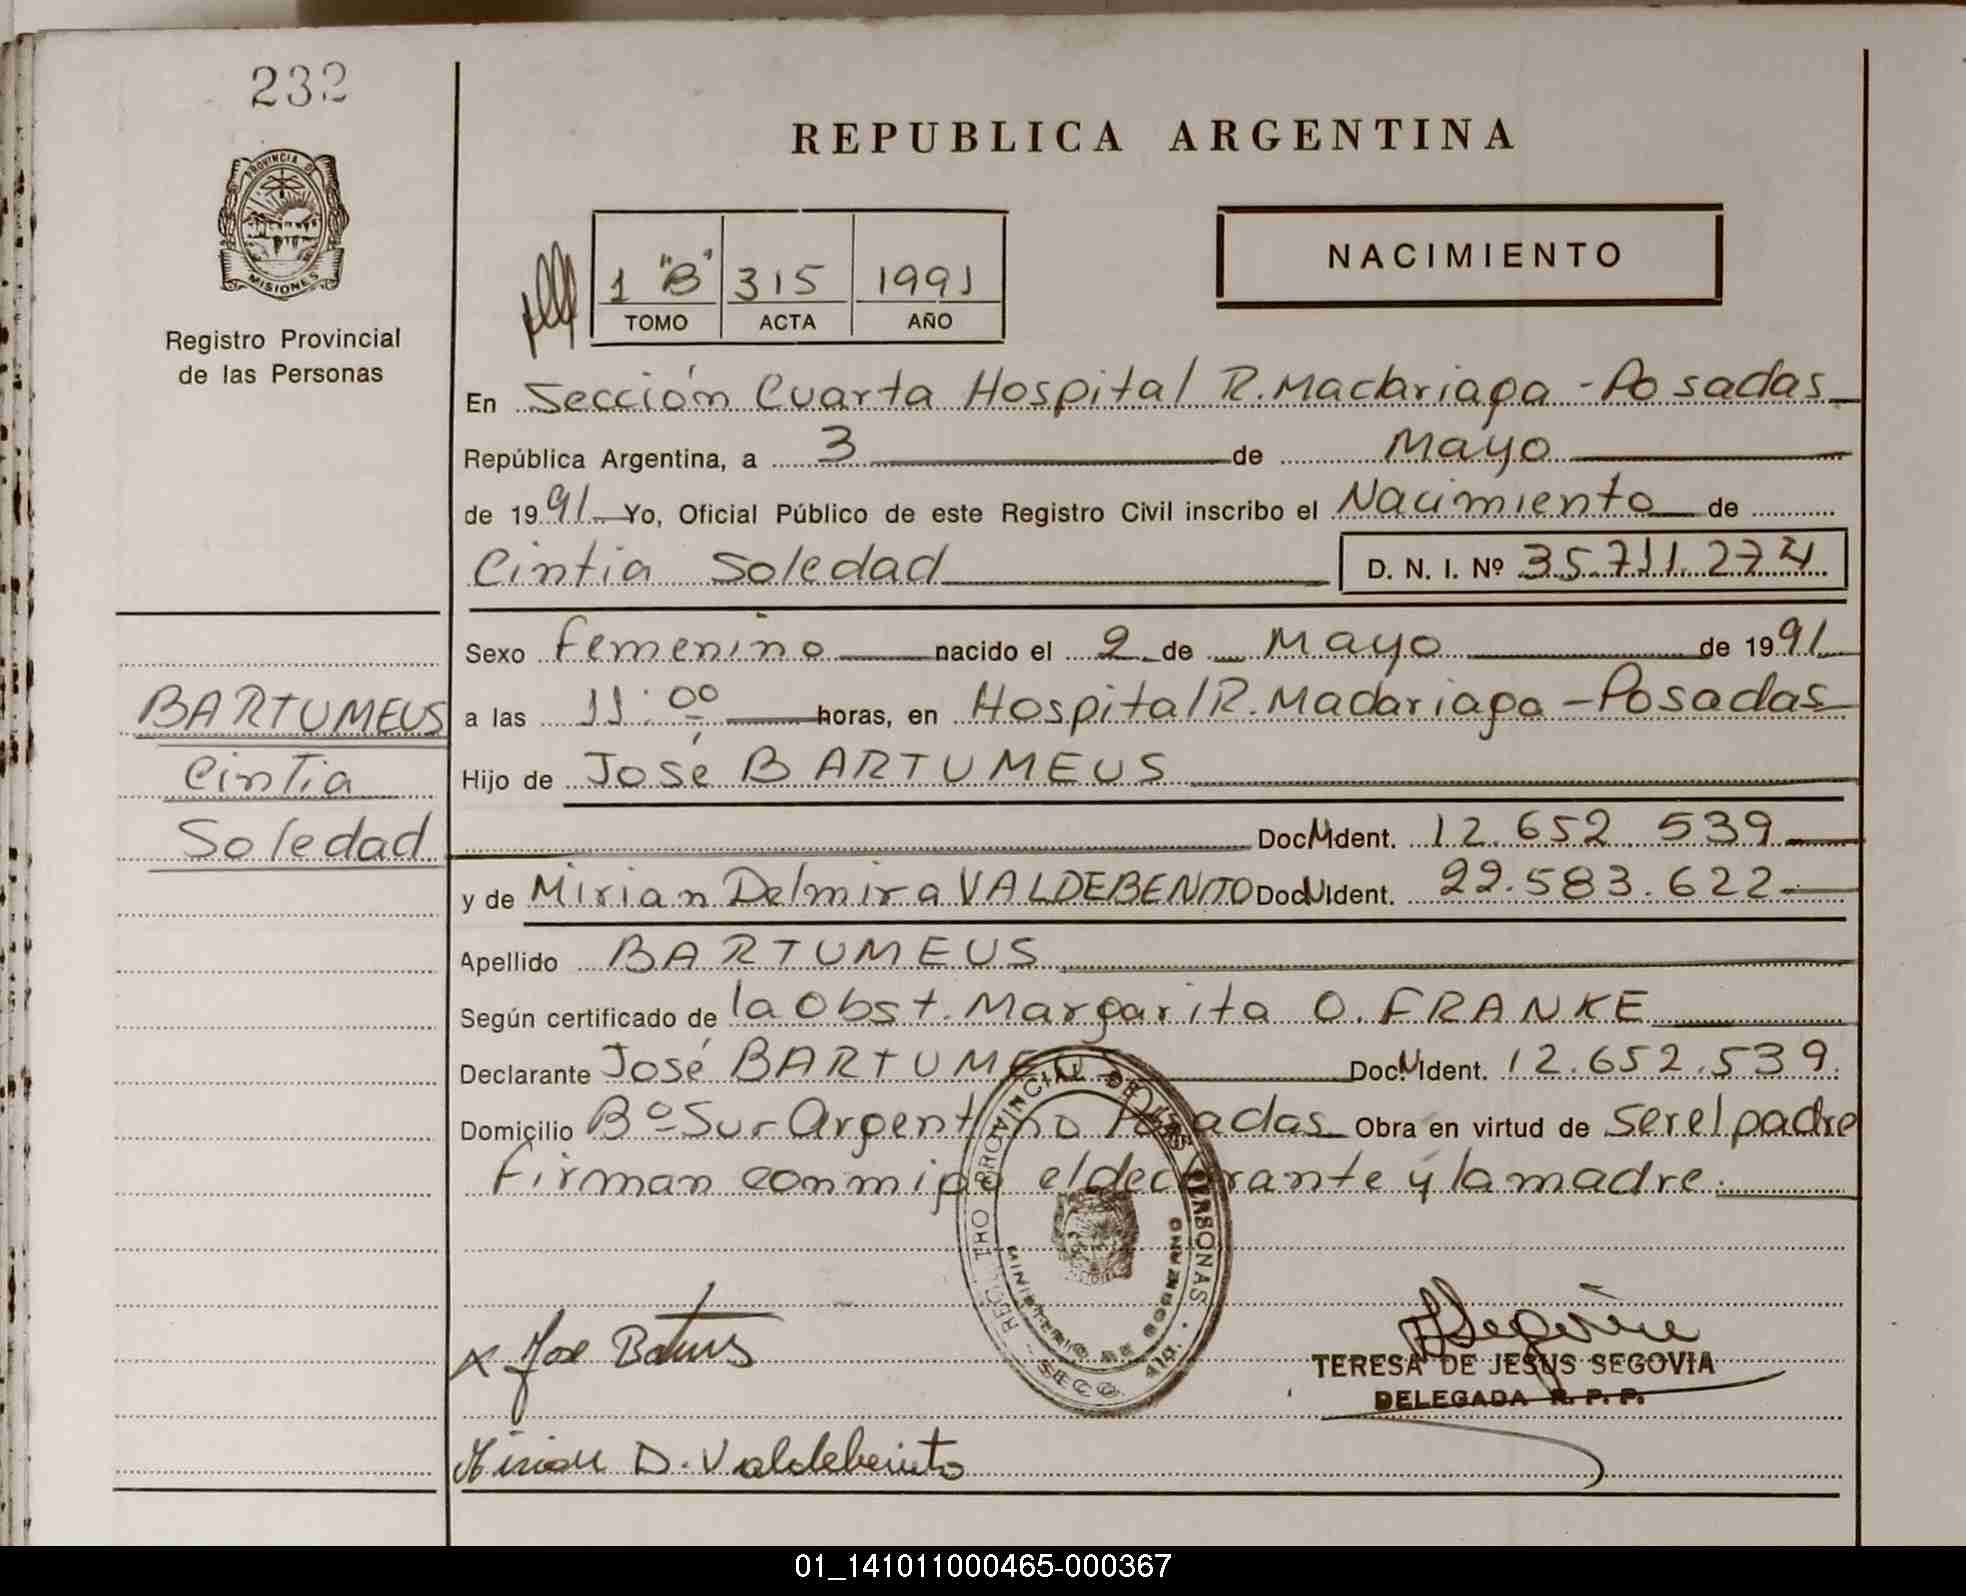 232
PROVINCIA DE
MISIONES
Registro Provincial
de las Personas
BARTUMEUS
Cintia
Soledad
REPUBLICA ARGENTINA
NACIMIENTO
1 "B" 315 1991
TOMO ACTA AÑO
En Sección Cuarta Hospital R. Madariaga - Posadas
República Argentina, a 3 de Mayo
de 1991 Yo, Oficial Público de este Registro Civil inscribo el Nacimiento de
Cintia Soledad D. N. I. Nº 35.711.274
Sexo femenino nacido el 2 de Mayo de 1991
a las 11:00 horas, en Hospital R. Madariaga - Posadas
Hijo de José BARTUMEUS
Doc. Ident. 12.652.539
y de Mirian Delmira VALDEBENITO Doc. Ident. 22.583.622
Apellido BARTUMEUS
Según certificado de la Obst. Margarita O. FRANKE
Declarante José BARTUMEU Doc. Ident. 12.652.539.
Domicilio Bº Sur Argentino Posadas Obra en virtud de ser el padre
firman conmigo el declarante y la madre.
REGISTRO PROVINCIAL DE LAS PERSONAS
MINISTERIO DE GOBIERNO
SECC. 4ta.
Jose
TERESA DE JESUS SEGOVIA
DELEGADA R. P. P.
Mirian D. Valdebenito
01_141011000465-000367